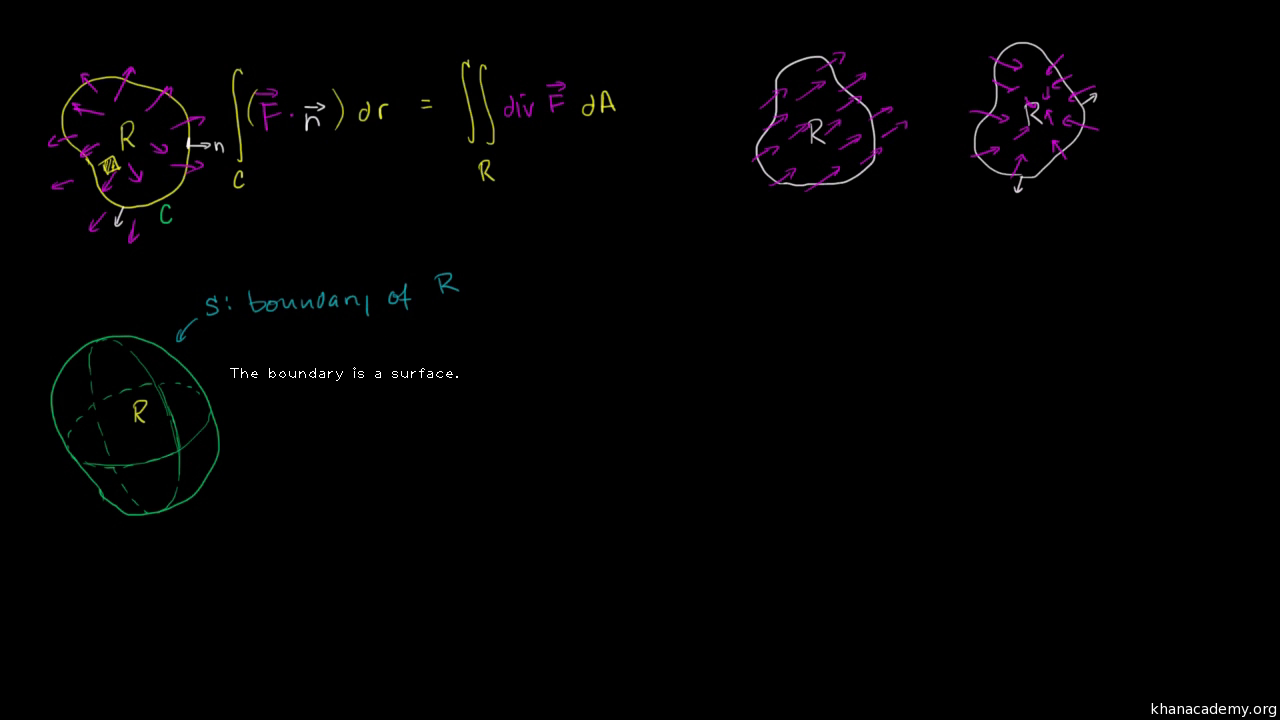 R
n
C
∫ ( F⃗ · n⃗ ) dr = ∬ div F⃗ dA
C
R
R
R
S: boundary of R
The boundary is a surface.
R
khanacademy.org